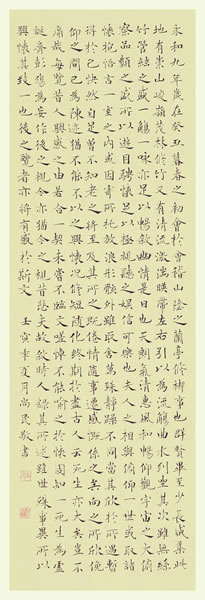 永和九年歲在癸丑暮春之初會於會稽山陰之蘭亭修禊事也群賢畢至少長咸集此
地有崇山峻嶺茂林修竹又有清流激湍映帶左右引以為流觴曲水列坐其次雖無絲
竹管絃之盛一觴一詠亦足以暢敘幽情是日也天朗氣清惠風和暢仰觀宇宙之大俯
察品類之盛所以遊目騁懷足以極視聽之娛信可樂也夫人之相與俯仰一世或取諸
懷抱悟言一室之內或因寄所託放浪形骸之外雖趣舍萬殊靜躁不同當其欣於所遇暫
得於己快然自足曾不知老之將至及其所之既倦情隨事遷感慨係之矣向之所欣俛
仰之間已為陳迹猶不能不以之興懷況修短隨化終期於盡古人云死生亦大矣豈不
痛哉每覽昔人興感之由若合一契未嘗不臨文嗟悼不能喻之於懷固知一死生為虛
誕齊彭殤為妄作後之視今亦猶今之視昔悲夫故敘時人錄其所述雖世殊事異所以
興懷其致一也後之覽者亦將有感於斯文 壬寅季夏月尚民敬書